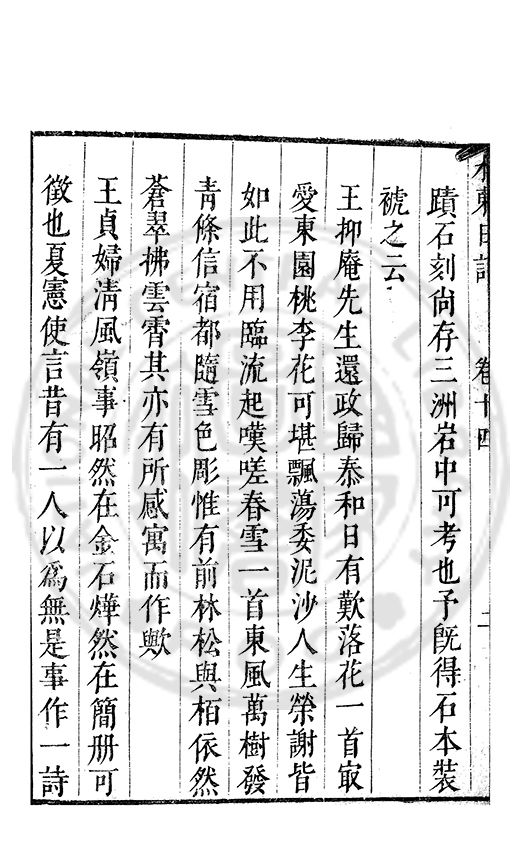 水東日記 卷十四 二
蹟石刻尙存三洲岩中可考也予旣得石本裝
褫之云
王抑庵先生還政歸泰和日有歎落花一首㝡
愛東園桃李花可堪飄蕩委泥沙人生榮謝皆
如此不用臨流起嘆嗟春雪一首東風萬樹發
靑條信宿都隨雪色彫惟有前林松與柏依然
蒼翠拂雲霄其亦有所感寓而作歟
王貞婦淸風嶺事昭然在金石燁然在簡册可
徵也夏憲使言昔有一人以爲無是事作一詩